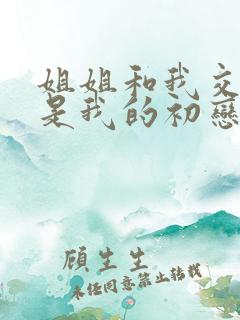 姐姐和我交
是我的初戀
顧生生
未經同意禁止轉載